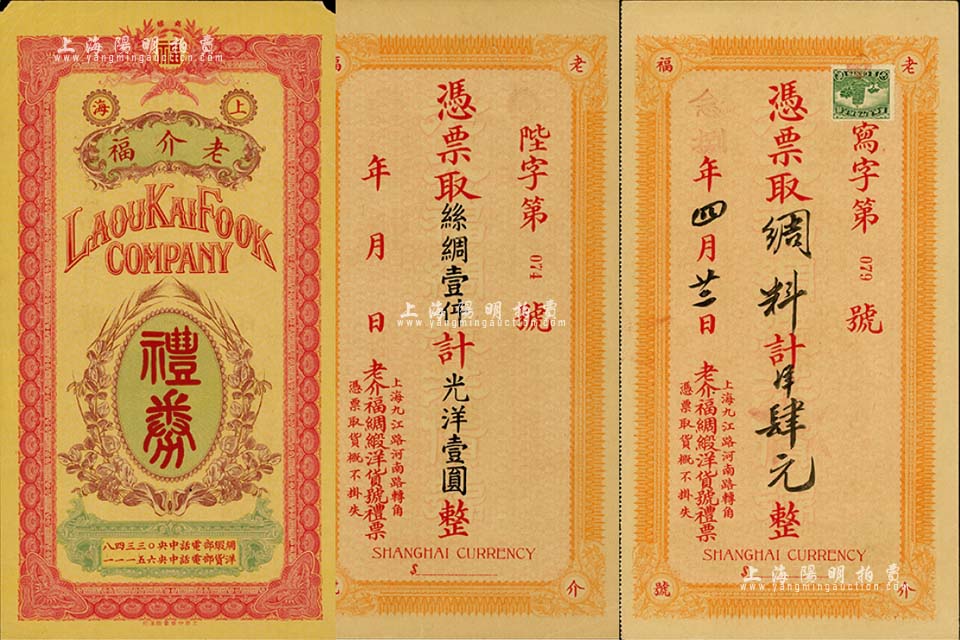 上海陽明拍賣
www.yangmingauction.com
福
上海
老介福
LAOU KAI FOOK
COMPANY
禮券
綢緞部電話中央〇三三四八
洋貨部電話中央六五一一一
老
福
陛字第074號
憑票取絲綢壹件計光洋壹圓整
年月日
上海九江路河南路轉角
老介福綢緞洋貨號禮票
憑票取貨概不掛失
SHANGHAI CURRENCY
$
介
號
上海陽明拍賣
www.yangmingauction.com
老
福
寫字第079號
憑票取綢料計洋肆元整
年四月廿二日
上海九江路河南路轉角
老介福綢緞洋貨號禮票
憑票取貨概不掛失
SHANGHAI CURRENCY
$
介
號
上海陽明拍賣
www.yangmingauction.com